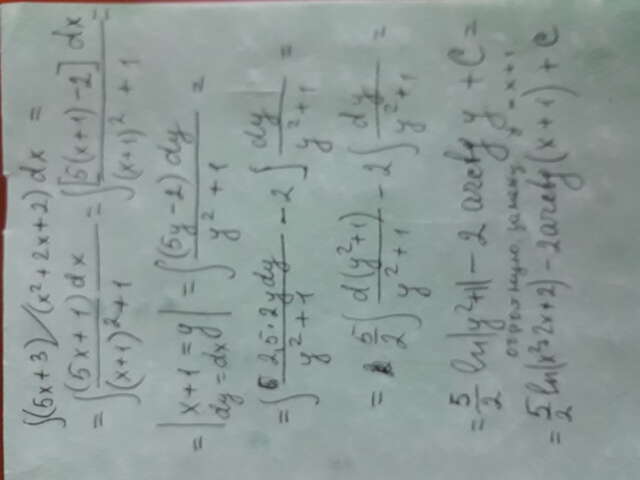 ∫(5x+3)/(x²+2x+2) dx =
= ∫ (5x+1)dx / (x+1)²+1 = ∫ [5(x+1)-2] dx / (x+1)²+1 =
= | x+1=y dy=dx | = ∫ (5y-2) dy / y²+1 =
= ∫ 2,5·2ydy / y²+1 - 2 ∫ dy / y²+1 =
= 5/2 ∫ d(y²+1) / y²+1 - 2 ∫ dy / y²+1 =
= 5/2 ln|y²+1| - 2 arctg y + C =
обратную замену y = x+1
= 5/2 ln(x²+2x+2) - 2arctg(x+1) + C